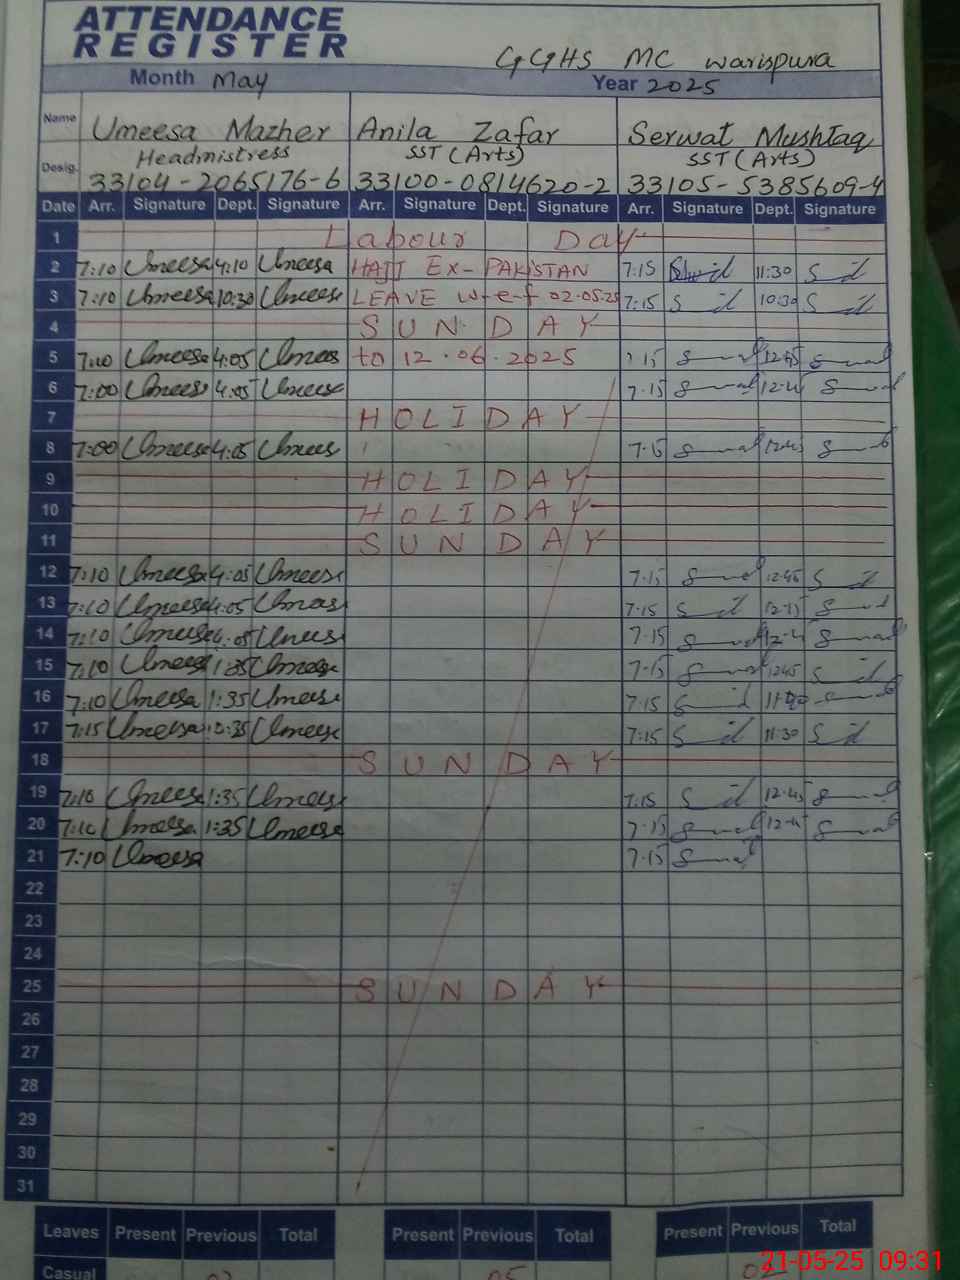 ATTENDANCE
REGISTER
GGHS MC warispura
Month May Year 2025
Name Umeesa Mazher Anila Zafar Serwat Mushtaq
Desig. Headmistress SST (Arts) SST (Arts)
33104-2065176-6 33100-0814620-2 33105-5385609-4
Date Arr. Signature Dept. Signature Arr. Signature Dept. Signature Arr. Signature Dept. Signature
1 Labour Day
2 7:10 Umeesa 4:10 Umeesa HAJJ EX-PAKISTAN 7:15 11:30
3 7:10 Umeesa 10:30 Umeesa LEAVE w-e-f 02.05.25 7:15 10:30
4 SUNDAY
5 7:10 Umeesa 4:05 Umees to 12.06.2025 7:15 12:45
6 7:00 Umeesa 4:05 Umeese 7:15 12:45
7 HOLIDAY
8 7:00 Umeesa 4:05 Umeese 7:15 12:45
9 HOLIDAY
10 HOLIDAY
11 SUNDAY
12 7:10 Umeesa 4:05 Umeese 7:15 12:45
13 7:10 Umeesa 4:05 7:15
14 7:10 Umeesa 4:05 Umeese 7:15
15 7:10 Umeesa 1:35 Umeese 7:15 12:45
16 7:10 Umeesa 1:35 Umeese 7:15
17 7:15 Umeesa Umeese 7:15 11:30
18 SUNDAY
19 7:10 Umeesa 1:35 Umeese 7:15 12:45
20 7:10 Umeesa 1:35 Umeesa 7:15
21 7:10 Umeesa 7:15
22
23
24
25 SUNDAY
26
27
28
29
30
31
Leaves Present Previous Total Present Previous Total Present Previous Total
Casual 05
21-05-25 09:31